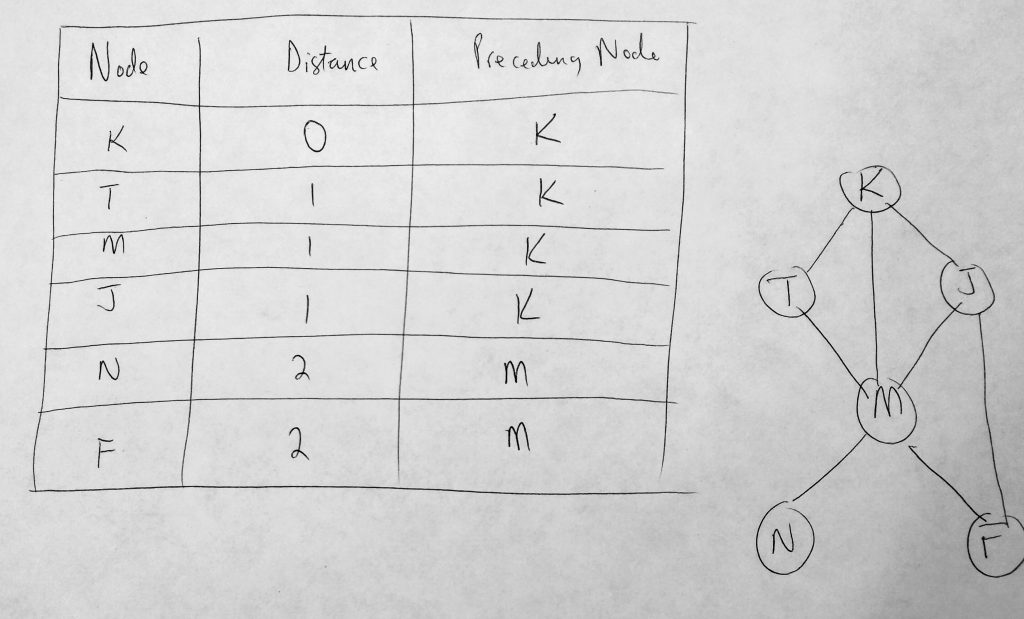 Node Distance Preceding Node
K 0 K
T 1 K
M 1 K
J 1 K
N 2 M
F 2 M
K
T J
M
N F